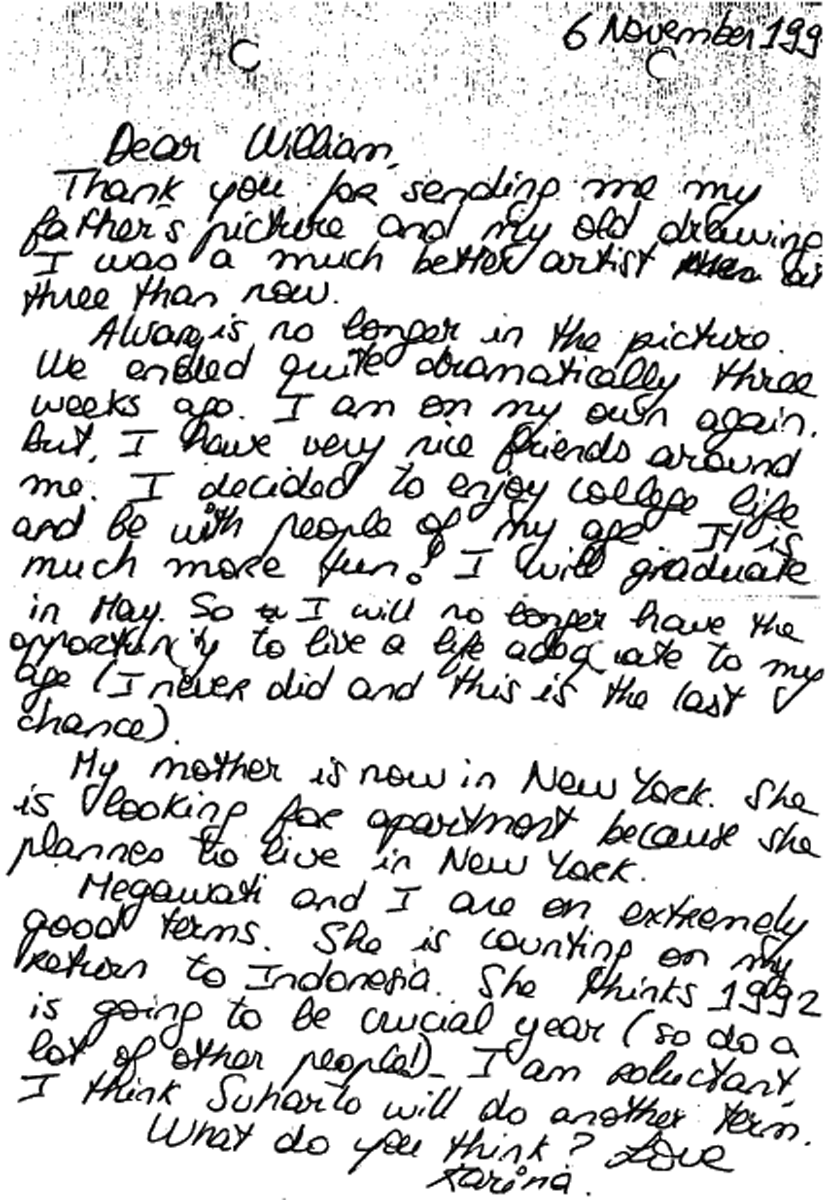 6 November 199
Dear William,
Thank you for sending me my
father's picture and my old drawing
I was a much better artist at
three than now.
Alvary is no longer in the picture.
We ended quite dramatically three
weeks ago. I am on my own again.
But, I have very nice friends around
me. I decided to enjoy college life
and be with people of my age. It is
much more fun! I will graduate
in May. So I will no longer have the
opportunity to live a life adequate to my
age (I never did and this is the last
chance).
My mother is now in New York. She
is looking for apartment because she
plannes to live in New York.
Megawati and I are on extremely
good terms. She is counting on my
return to Indonesia. She thinks 1992
is going to be crucial year (so do a
lot of other people!). I am reluctant.
I think Suharto will do another term.
What do you think? Love
Karina.